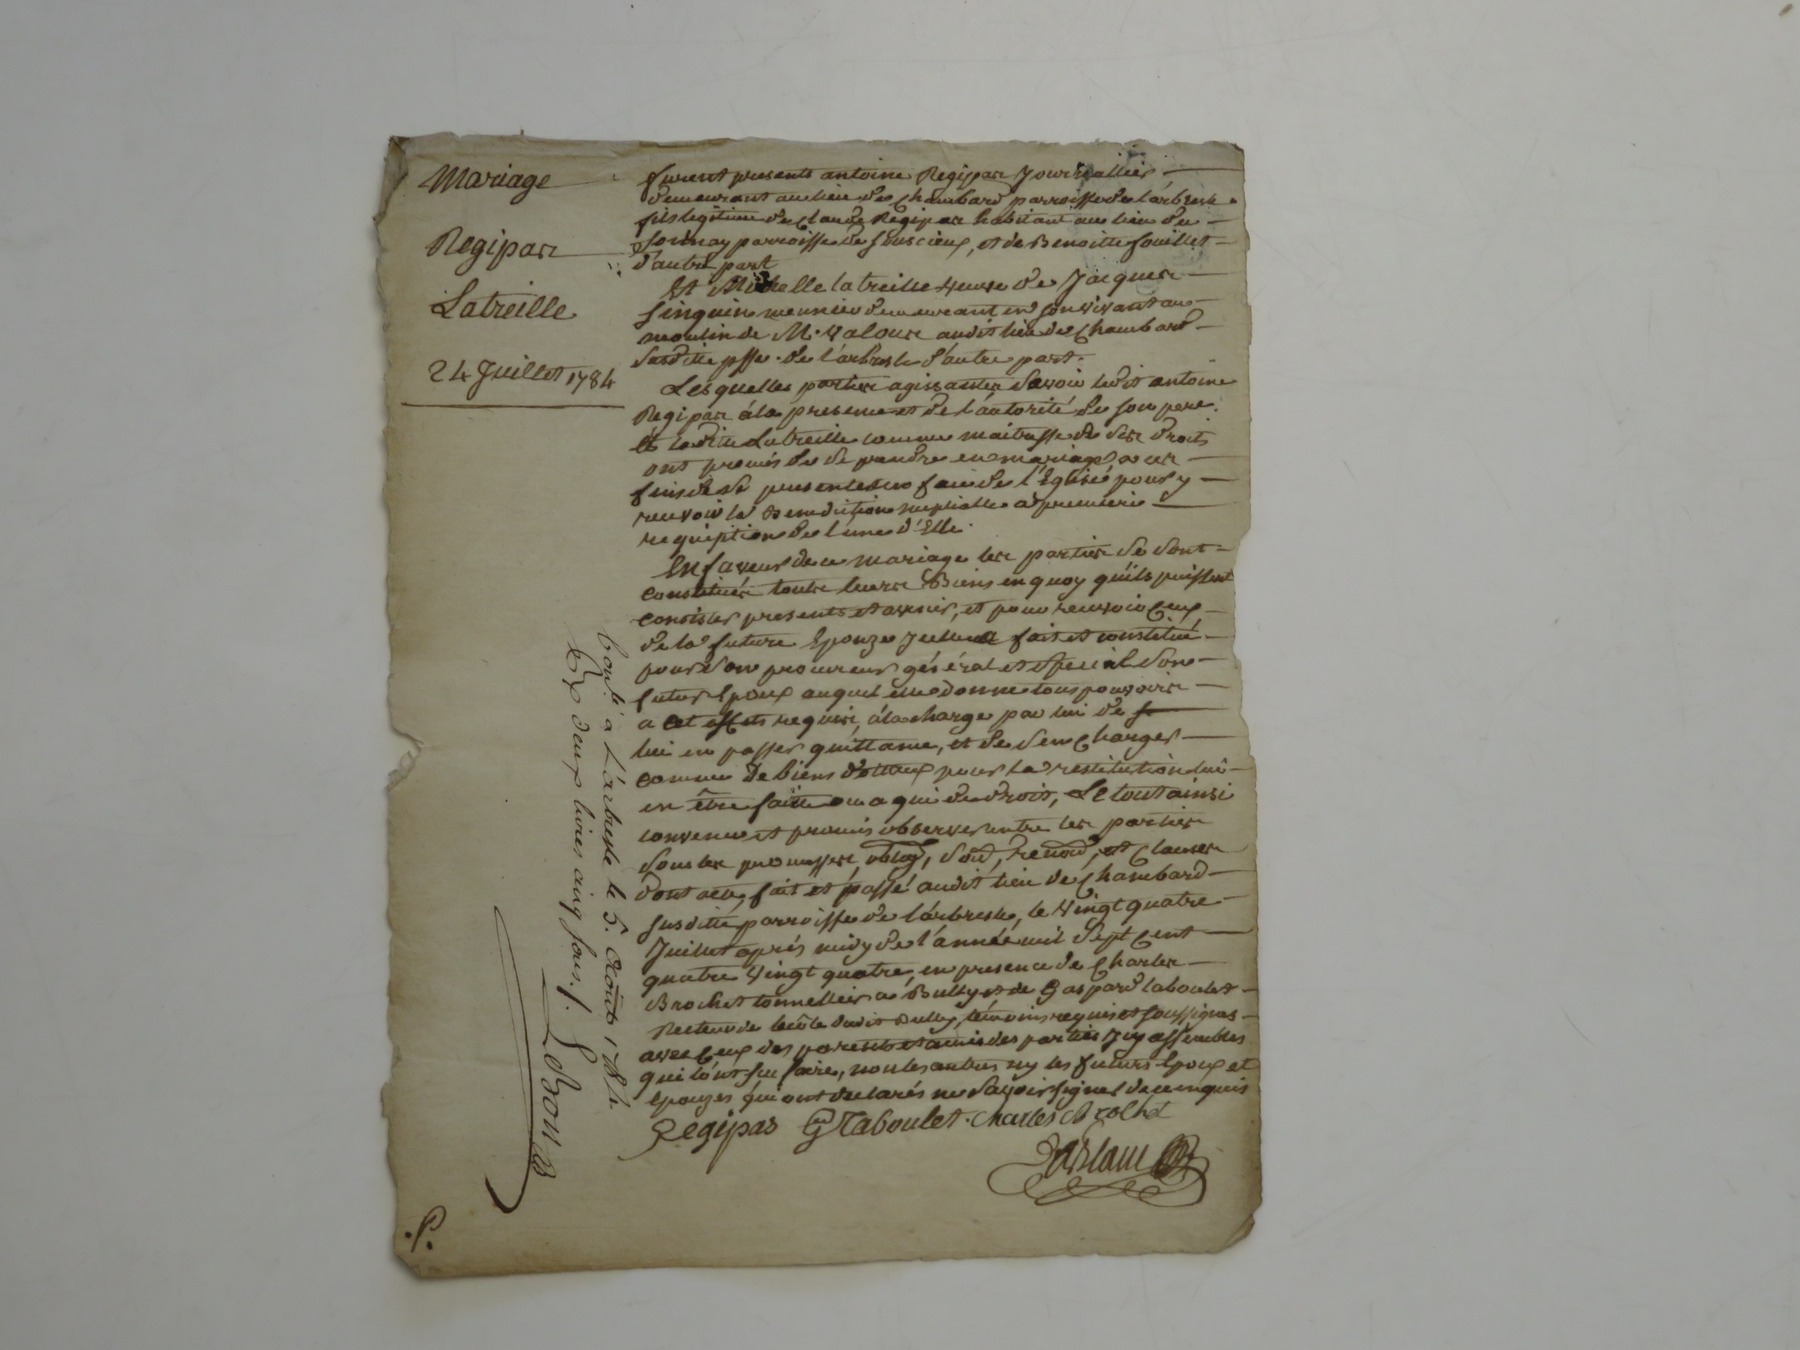 Mariage
Regipas
Latreille
24 Juillet 1784
furent presents antoine Regipas Journallier
demeurant au lieu de Chambard parroisse de l'arbresle
fils legitime de Claude Regipas habitant au lieu de
parroisse de sourcieux, et de Benoitte fouillet
d'autre part
Et Michelle latreille veuve de Jacques
meunier demeurant en son vivant au
moulin de M. valour audit lieu de Chambard
susditte psse. de l'arbresle d'autre part.
Lesquelles parties agissantes savoir ledit antoine
Regipas á la presence et de l'autorité de son pere.
Et laditte Latreille comme maitresse de ses droits
ont promis de se prendre en mariage a ces
fins de se presenter en face de l'Eglise pour y
recevoir la Benediction nuptialle a premiere
requiption de l'une d'Elle.
En faveur de ce mariage les parties se sont
constitués toutes leurs Biens en quoy qu'ils puissent
consister presents et avenir, et pour recevoir Ceux
de la future Epouze Jcelle a fait et constitué
pour son procureur général et special son
futur Epoux auquel elle donne tous pouvoirs
a cet effets requis, á la charge par lui de
lui en passer quittame, et de s'en Charger
comme de biens dottaux pour la restitution lui
en être faitte ou a qui de droit, Le tout ainsi
convenu et promis observer entre les parties
sous les promesses, oblig, soû, renon, et Clauses
dont acte, fait et passé audit lieu de Chambard
susditte parroisse de l'arbresle, le vingt quatre
Juillet aprés midy de l'année mil sept Cent
quatre vingt quatre, en presence de Charles
Brochet tonnellier a Bully et de Gaspard laboulet
Recteur de lecole dudit Bully, témoins requis et soussignes
avec Ceux des parents et amis des parties Jcy assemblés
qui l'ont sçu faire, non les autres ny les futurs Epoux et
Epouzes qui ont declarés ne savoir signer de ce enquis
Regipas G Laboulet Charles Brochet
Conlé à L'arbresle le 5. Aout 1784
Rx deux livres cinq sous.
.P.